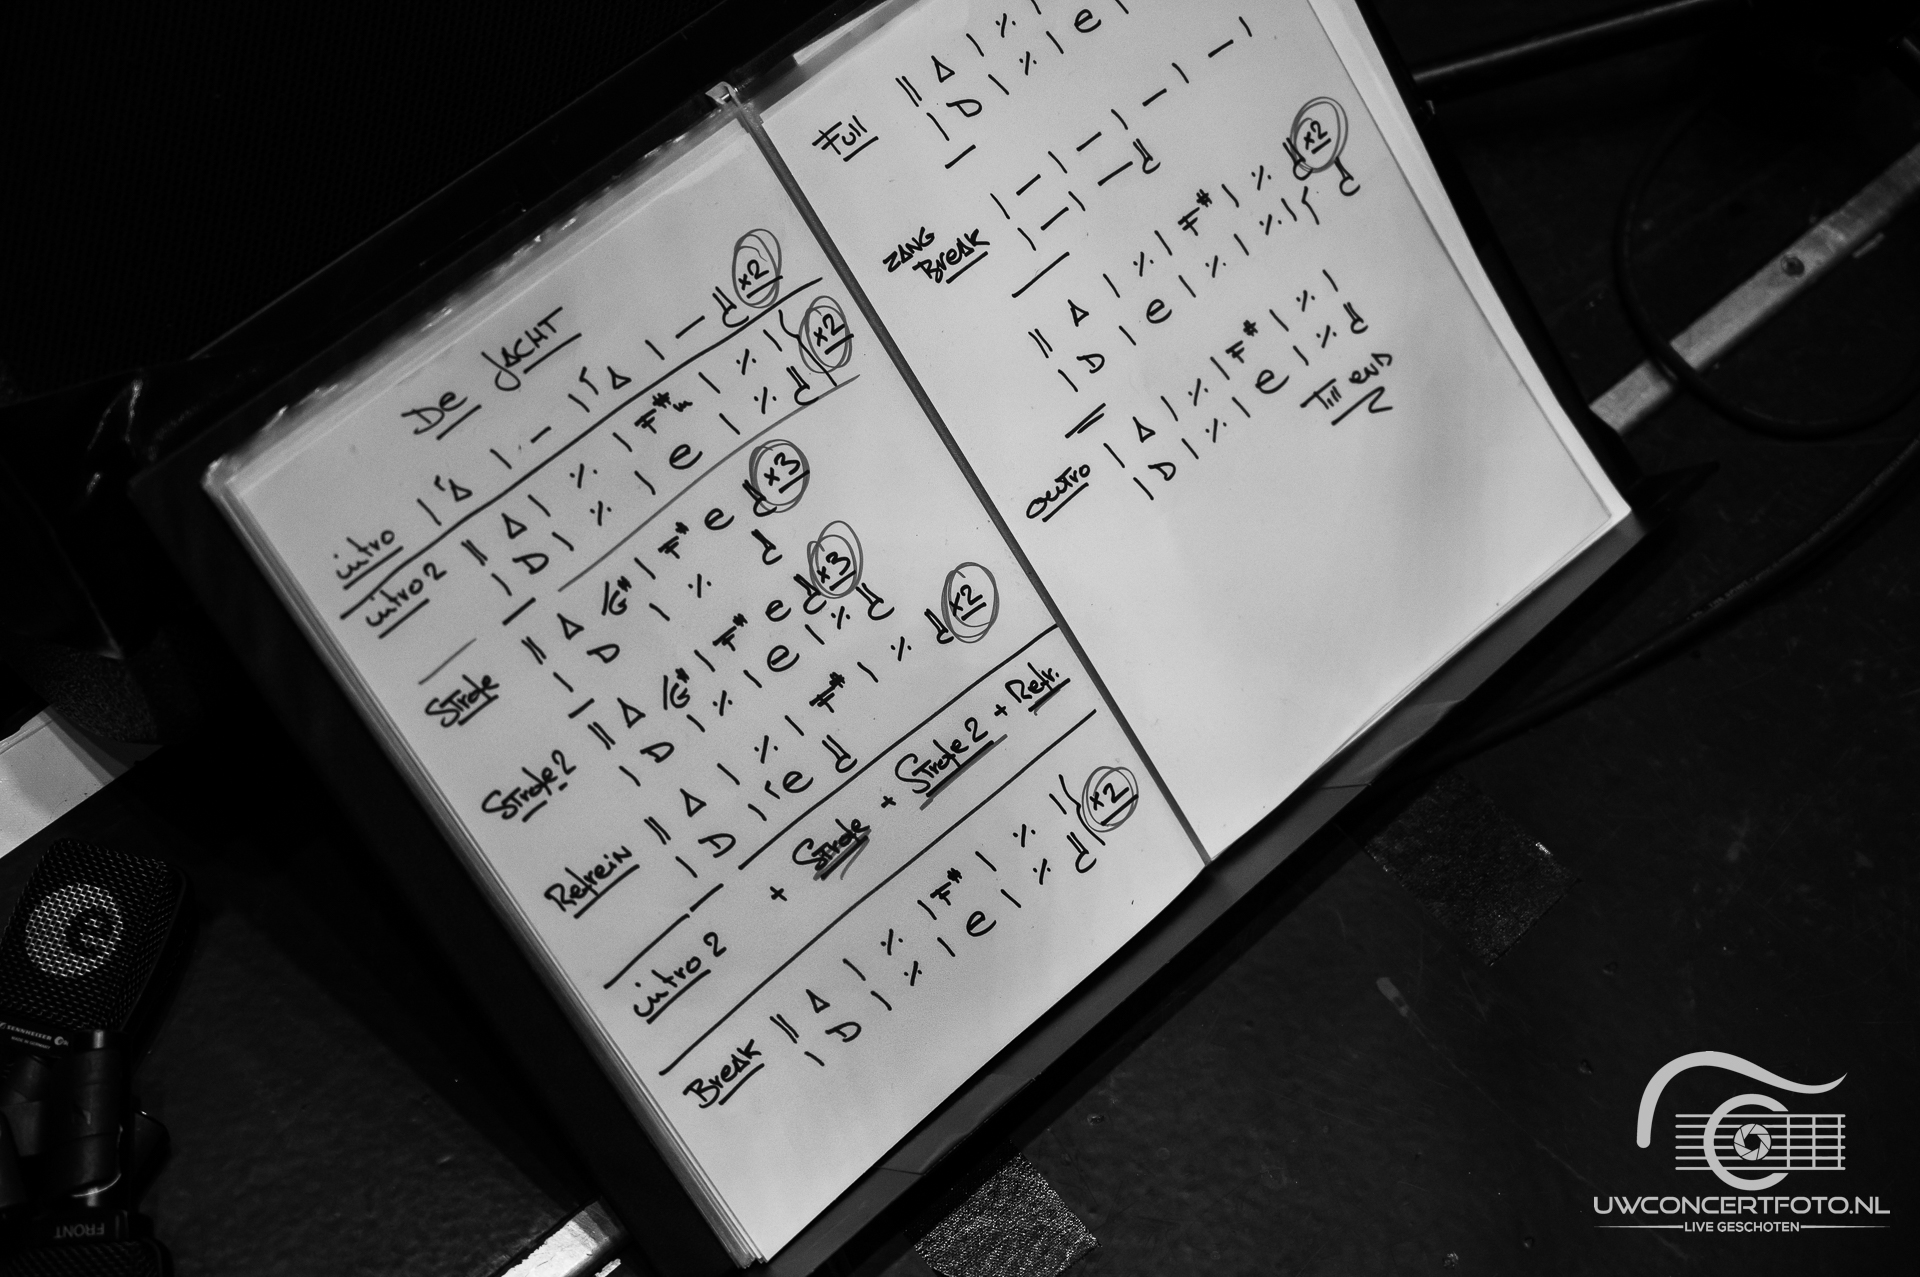 De Jacht
intro | 'A | - | 'A | - :|| x2
intro 2 || A | % | F#m | % |
| D | % | e | % :|| x2
Strofe || A /G# | F# e :|| x3
| D | % :||
Strofe 2 || A /G# | F# e :|| x3
| D | % | e | % :||
Refrein || A | % | F# | % :|| x2
| D | 'e :||
intro 2 + Strofe + Strofe 2 + Refr.
Break || A | % | F# | % |
| D | % | e | % :|| x2
Full || A | % |
| D | % | e |
ZANG Break | - | - | - | - |
| - | - :||
|| A | % | F# | % :|| x2
| D | e | % | % | :||
outro | A | % | F# | % |
| D | % | e | % :||
Till end
SENNHEISER
FRONT
UWCONCERTFOTO.NL
LIVE GESCHOTEN